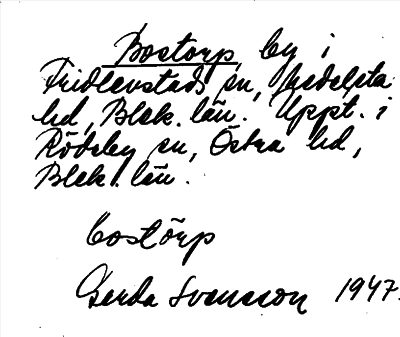 Bostorp, by i
Fridlevstads sn, Medelsta
hd, Blek. län. Uppt. i
Rödeby sn, Östra hd,
Blek. län.
bostôrp
Gerda Svensson 1947.